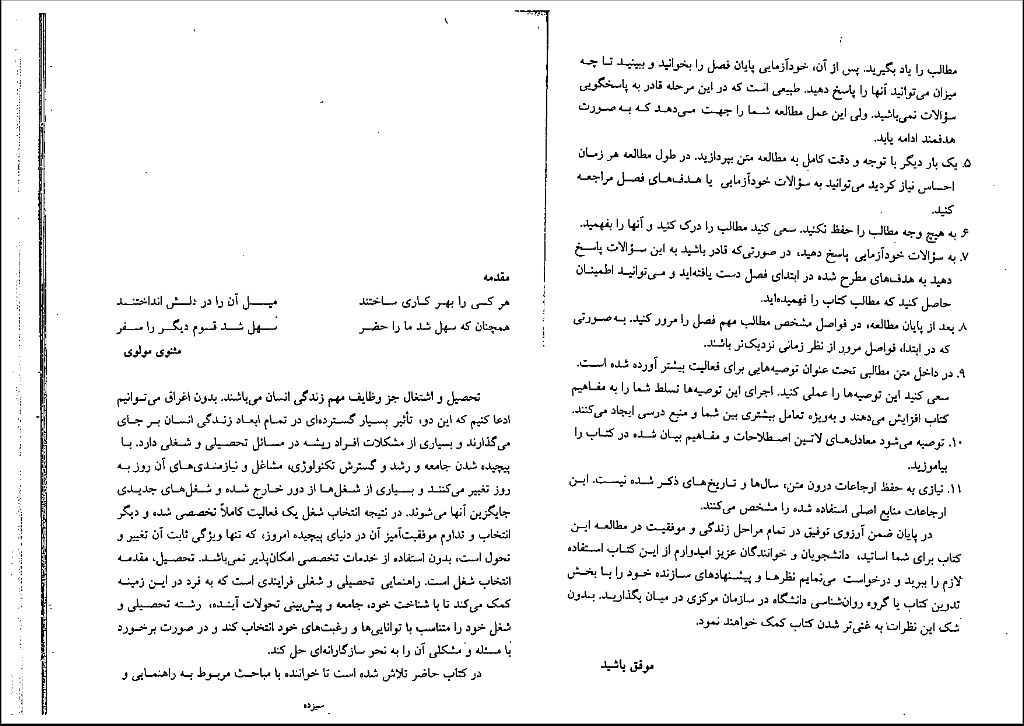 مطالب را یاد بگیرید. پس از آن، خودآزمایی پایان فصل را بخوانید و ببینید تا چه
میزان می‌توانید آنها را پاسخ دهید. طبیعی است که در این مرحله قادر به پاسخگویی
سؤالات نمی‌باشید. ولی این عمل مطالعه شما را جهت می‌دهد که به صورت
هدفمند ادامه یابد.
۵. یک بار دیگر با توجه و دقت کامل به مطالعه متن بپردازید. در طول مطالعه هر زمان
احساس نیاز کردید می‌توانید به سؤالات خودآزمایی یا هدف‌های فصل مراجعه
کنید.
۶. به هیچ وجه مطالب را حفظ نکنید. سعی کنید مطالب را درک کنید و آنها را بفهمید.
۷. به سؤالات خودآزمایی پاسخ دهید، در صورتی‌که قادر باشید به این سؤالات پاسخ
دهید به هدف‌های مطرح شده در ابتدای فصل دست یافته‌اید و می‌توانید اطمینان
حاصل کنید که مطالب کتاب را فهمیده‌اید.
۸. بعد از پایان مطالعه، در فواصل مشخص مطالب مهم فصل را مرور کنید. به‌صورتی
که در ابتدا، فواصل مرور از نظر زمانی نزدیک‌تر باشند.
۹. در داخل متن مطالبی تحت عنوان توصیه‌هایی برای فعالیت بیشتر آورده شده است.
سعی کنید این توصیه‌ها را عملی کنید. اجرای این توصیه‌ها تسلط شما را به مفاهیم
کتاب افزایش می‌دهند و به‌ویژه تعامل بیشتری بین شما و منبع درسی ایجاد می‌کنند.
۱۰. توصیه می‌شود معادل‌های لاتین اصطلاحات و مفاهیم بیان شده در کتاب را
بیاموزید.
۱۱. نیازی به حفظ ارجاعات درون متن، سال‌ها و تاریخ‌های ذکر شده نیست. این
ارجاعات منابع اصلی استفاده شده را مشخص می‌کنند.
در پایان ضمن آرزوی توفیق در تمام مراحل زندگی و موفقیت در مطالعه این
کتاب برای شما اساتید، دانشجویان و خوانندگان عزیز امیدوارم از این کتاب استفاده
لازم را ببرید و درخواست می‌نمایم نظرها و پیشنهادهای سازنده خود را با بخش
تدوین کتاب یا گروه روان‌شناسی دانشگاه در سازمان مرکزی در میان بگذارید. بدون
شک این نظرات به غنی‌تر شدن کتاب کمک خواهند نمود.
موفق باشید
مقدمه
هر کسی را بهر کاری ساختند میل آن را در دلش انداختند
همچنان که سهل شد ما را حضر سهل شد قوم دیگر را سفر
مثنوی مولوی
تحصیل و اشتغال جز وظایف مهم زندگی انسان می‌باشند. بدون اغراق می‌توانیم
ادعا کنیم که این دو، تأثیر بسیار گسترده‌ای در تمام ابعاد زندگی انسان بر جای
می‌گذارند و بسیاری از مشکلات افراد ریشه در مسائل تحصیلی و شغلی دارد. با
پیچیده شدن جامعه و رشد و گسترش تکنولوژی، مشاغل و نیازمندی‌های آن روز به
روز تغییر می‌کنند و بسیاری از شغل‌ها از دور خارج شده و شغل‌های جدیدی
جایگزین آنها می‌شوند. در نتیجه انتخاب شغل یک فعالیت کاملاً تخصصی شده و دیگر
انتخاب و تداوم موفقیت‌آمیز آن در دنیای پیچیده امروز، که تنها ویژگی ثابت آن تغییر و
تحول است، بدون استفاده از خدمات تخصصی امکان‌پذیر نمی‌باشد. تحصیل، مقدمه
انتخاب شغل است. راهنمایی تحصیلی و شغلی فرایندی است که به فرد در این زمینه
کمک می‌کند تا با شناخت خود، جامعه و پیش‌بینی تحولات آینده، رشته تحصیلی و
شغل خود را متناسب با توانایی‌ها و رغبت‌های خود انتخاب کند و در صورت برخورد
با مسئله و مشکلی آن را به نحو سازگارانه‌ای حل کند.
در کتاب حاضر تلاش شده است تا خواننده با مباحث مربوط به راهنمایی و
سیزده